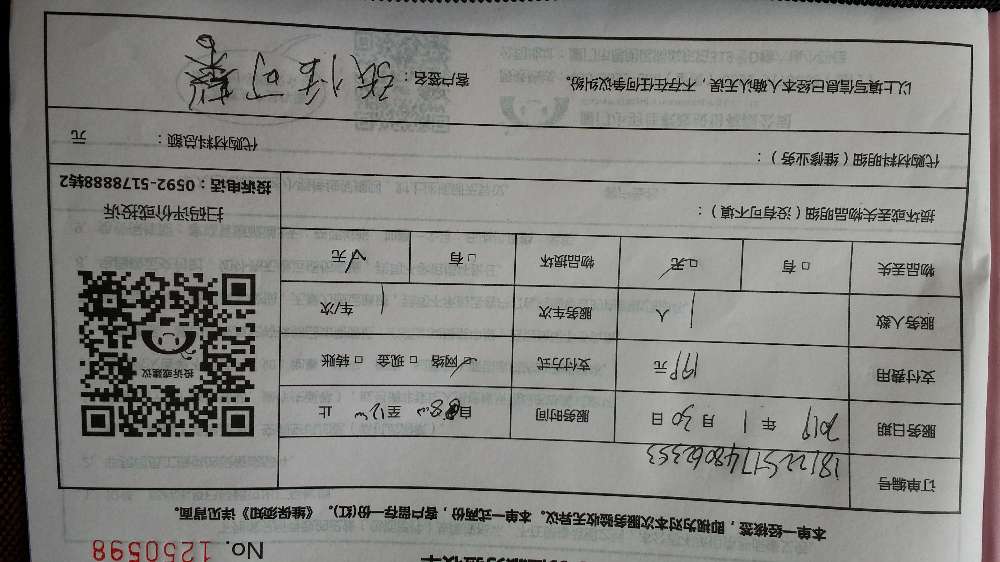 No. 1250598
本单一经核签，即视为对本次服务验收无异议。本单一式两份，客户留存一份(红)。《维保须知》详见背面。
订单编号 1812251748062353
服务日期 2019 年 1 月 30 日 服务时间 自 8:00 至 12:00 止
支付费用 199 元 支付方式 ☑网络 □现金 □转账
服务人数 1 人 服务车次 1 车/次
物品丢失 □有 ☑无 物品损坏 □有 ☑无
投诉或建议
扫码评价或投诉
投诉电话：0592-5178888转2
损坏或丢失物品明细（没有可不填）：
代购材料明细（维修业务）：
代购材料总额： 元
以上填写信息已经本人确认无误，不存在任何争议纠纷。
客户签名：